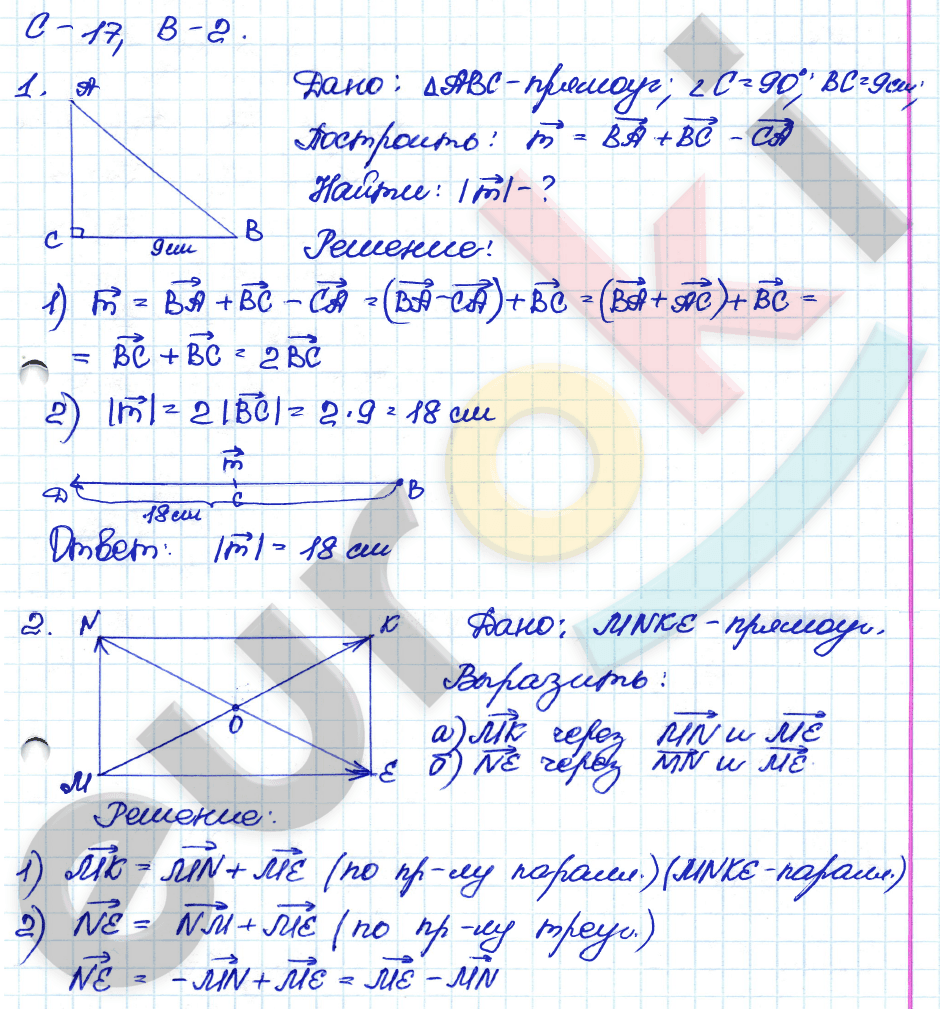 С-17, В-2.
1. A
Дано: ΔABC-прямоуг; ∠C=90°; BC=9см;
Построить: m⃗ = BA⃗ + BC⃗ - CA⃗
Найти: |m⃗|-?
C 9см B
Решение:
1) m⃗ = BA⃗ + BC⃗ - CA⃗ = (BA⃗ - CA⃗) + BC⃗ = (BA⃗ + AC⃗) + BC⃗ =
= BC⃗ + BC⃗ = 2BC⃗
2) |m⃗| = 2|BC⃗| = 2·9 = 18 см
m⃗
D C B
18см
Ответ: |m⃗| = 18 см
2. N K
Дано: MNKE-прямоуг.
Выразить:
O
а) MK⃗ через MN⃗ и ME⃗
б) NE⃗ через MN⃗ и ME⃗
M E
Решение:
1) MK⃗ = MN⃗ + ME⃗ (по пр-лу паралл.) (MNKE-паралл.)
2) NE⃗ = NM⃗ + ME⃗ (по пр-лу треуг.)
NE⃗ = -MN⃗ + ME⃗ = ME⃗ - MN⃗
euroki